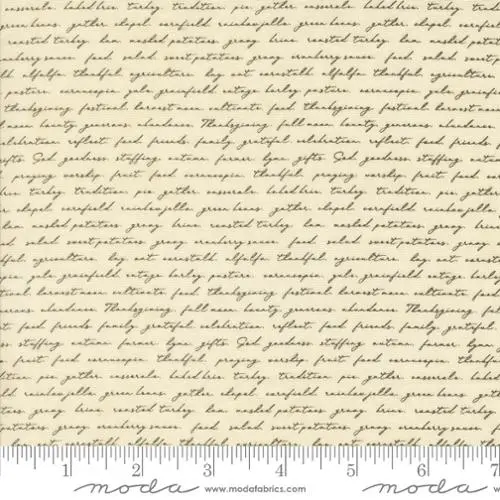 casserole. baked brie. turkey. tradition. pie. gather. casserole. baked brie. turkey. tradi
green beans. gather. chapel. cornfield. rainbow jello. green beans. gather. chapel. cornfield.
roasted turkey. ham. mashed potatoes. gravy. brine. roasted turkey. ham. mashed potatoes.
cranberry sauce. food. salad. sweet potatoes. gravy. cranberry sauce. food. salad. sweet p
alfalfa. thankful. agriculture. hay. oat. cornstalk. alfalfa. thankful. agriculture.
pasture. cornucopia. yule. grainfield. cottage. barley. pasture. cornucopia.
thanksgiving. festival. harvest moon. cultivate. feast. thanksgiving. festival. harvest moon
beauty. generous. abundance. Thanksgiving. fall moon. beauty. generous. abundance.
celebration. reflect. food. friends. family. grateful. celebration. reflect. food. friends.
gifts. God. goodness. stuffing. autumn. farmer. hymn. gifts. God. goodness. stuffing. autum
praying. worship. fruit. feed. cornucopia. thankful. praying. worship. fruit. feed. co
brie. turkey. tradition. pie. gather. casserole. baked brie. turkey. tradition. pie. gather
chapel. cornfield. rainbow jello. green beans. gather. chapel. cornfield. rainbow jello.
ham. mashed potatoes. gravy. brine. roasted turkey. ham. mashed potatoes. gravy.
salad. sweet potatoes. gravy. cranberry sauce. food. salad. sweet potatoes. gravy.
agriculture. hay. oat. cornstalk. alfalfa. thankful. agriculture. hay. oat. cornst
yule. grainfield. cottage. barley. pasture. cornucopia. yule. grainfield. cottage. barley.
harvest moon. cultivate. feast. thanksgiving. festival. harvest moon. cultivate. feast
abundance. Thanksgiving. fall moon. beauty. generous. abundance. Thanksgiving. fall
food. friends. family. grateful. celebration. reflect. food. friends. family. grateful.
stuffing. autumn. farmer. hymn. gifts. God. goodness. stuffing. autumn. farmer. hymn.
fruit. feed. cornucopia. thankful. praying. worship. fruit. feed. cornucopia. thankf
pie. gather. casserole. baked brie. turkey. tradition. pie. gather. casserole. baked
rainbow jello. green beans. gather. chapel. cornfield. rainbow jello. green beans.
gravy. brine. roasted turkey. ham. mashed potatoes. gravy. brine. roasted turkey.
gravy. cranberry sauce. food. salad. sweet potatoes. gravy. cranberry sauce.
hay. oat. cornstalk. alfalfa. thankful. agriculture. hay. oat. cornstalk. alfalfa.
1 2 3 4 5 6 7
moda www.modafabrics.com moda